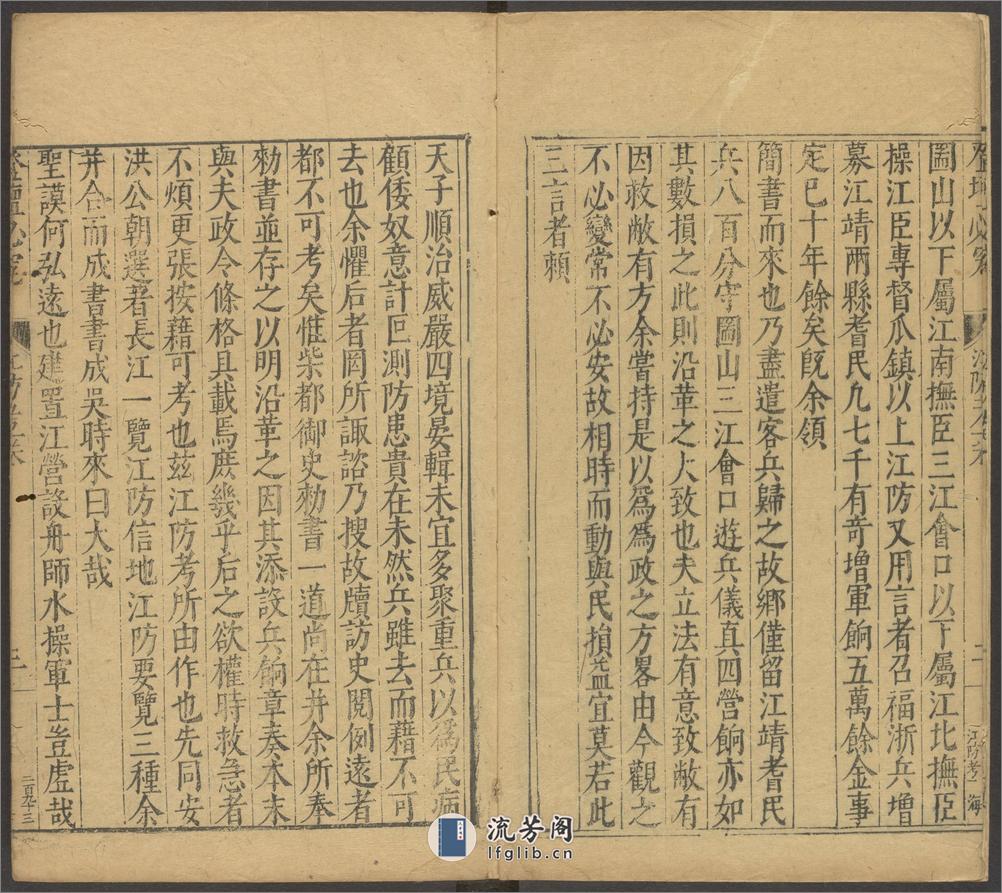 圌山以下屬江南撫臣三江會口以下屬江北撫臣
操江臣專督瓜鎮以上江防又用言者召福浙兵增
募江靖兩縣耆民凡七千有奇增軍餉五萬餘金事
定已十年餘矣旣余領
簡書而來也乃盡遣客兵歸之故鄉僅留江靖耆民
兵八百分守圌山三江會口遊兵儀真四營餉亦如
其數損之此則沿革之大致也夫立法有意致敝有
因救敝有方余嘗持是以爲爲政之方畧由今觀之
不必變常不必安故相時而動與民損益宜莫若此
三言者賴
天子順治威嚴四境晏輯未宜多聚重兵以爲民病
顧倭奴意計叵測防患貴在未然兵雖去而藉不可
去也余懼后者罔所諏諮乃搜故牘訪史閱例遠者
都不可考矣惟柴都御史勑書一道尚在并余所奉
勑書並存之以明沿革之因其添設兵餉章奏本末
與夫政令條格具載焉庶幾乎后之欲權時救急者
不煩更張按藉可考也茲江防考所由作也先同安
洪公朝選著長江一覽江防信地江防要覽三種余
并合而成書書成吳時來曰大哉
聖謨何弘遠也建置江營設舟師水操軍士豈虛哉
登壇必究
江防考卷
三
二百九十三
流芳阁
lfglib.cn